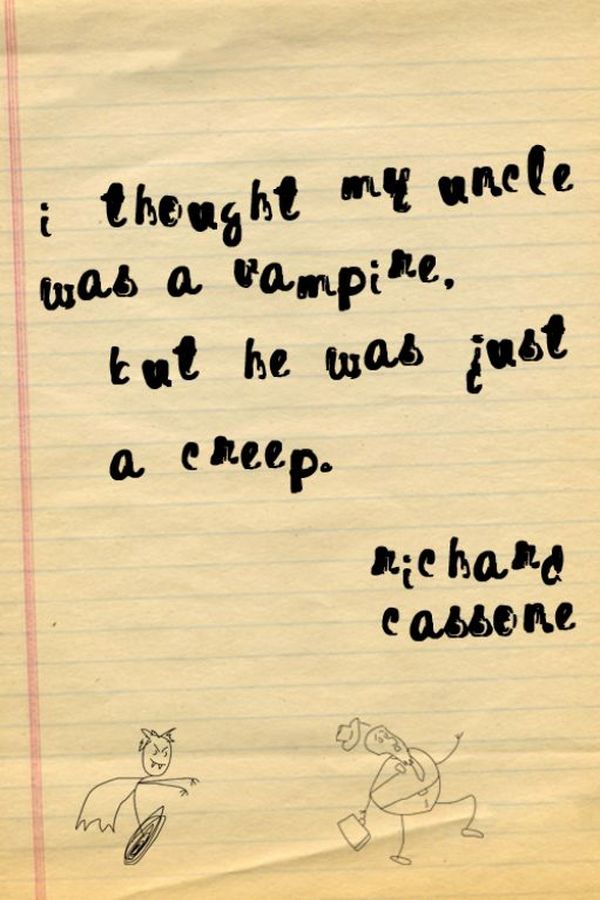 i thought my uncle
was a vampire,
but he was just
a creep.
richard
cassone